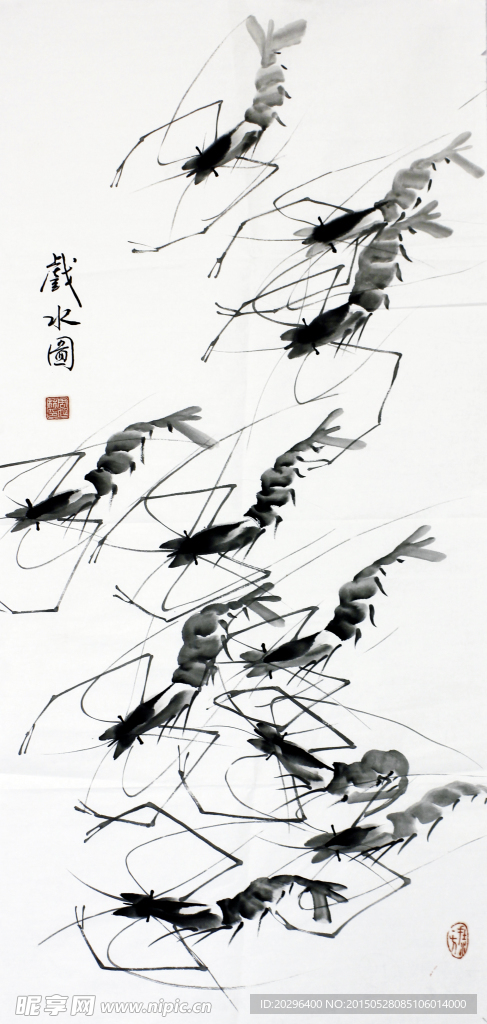 戲水圖
昵享网 www.nipic.cn
ID:20296400 NO:20150528085106014000